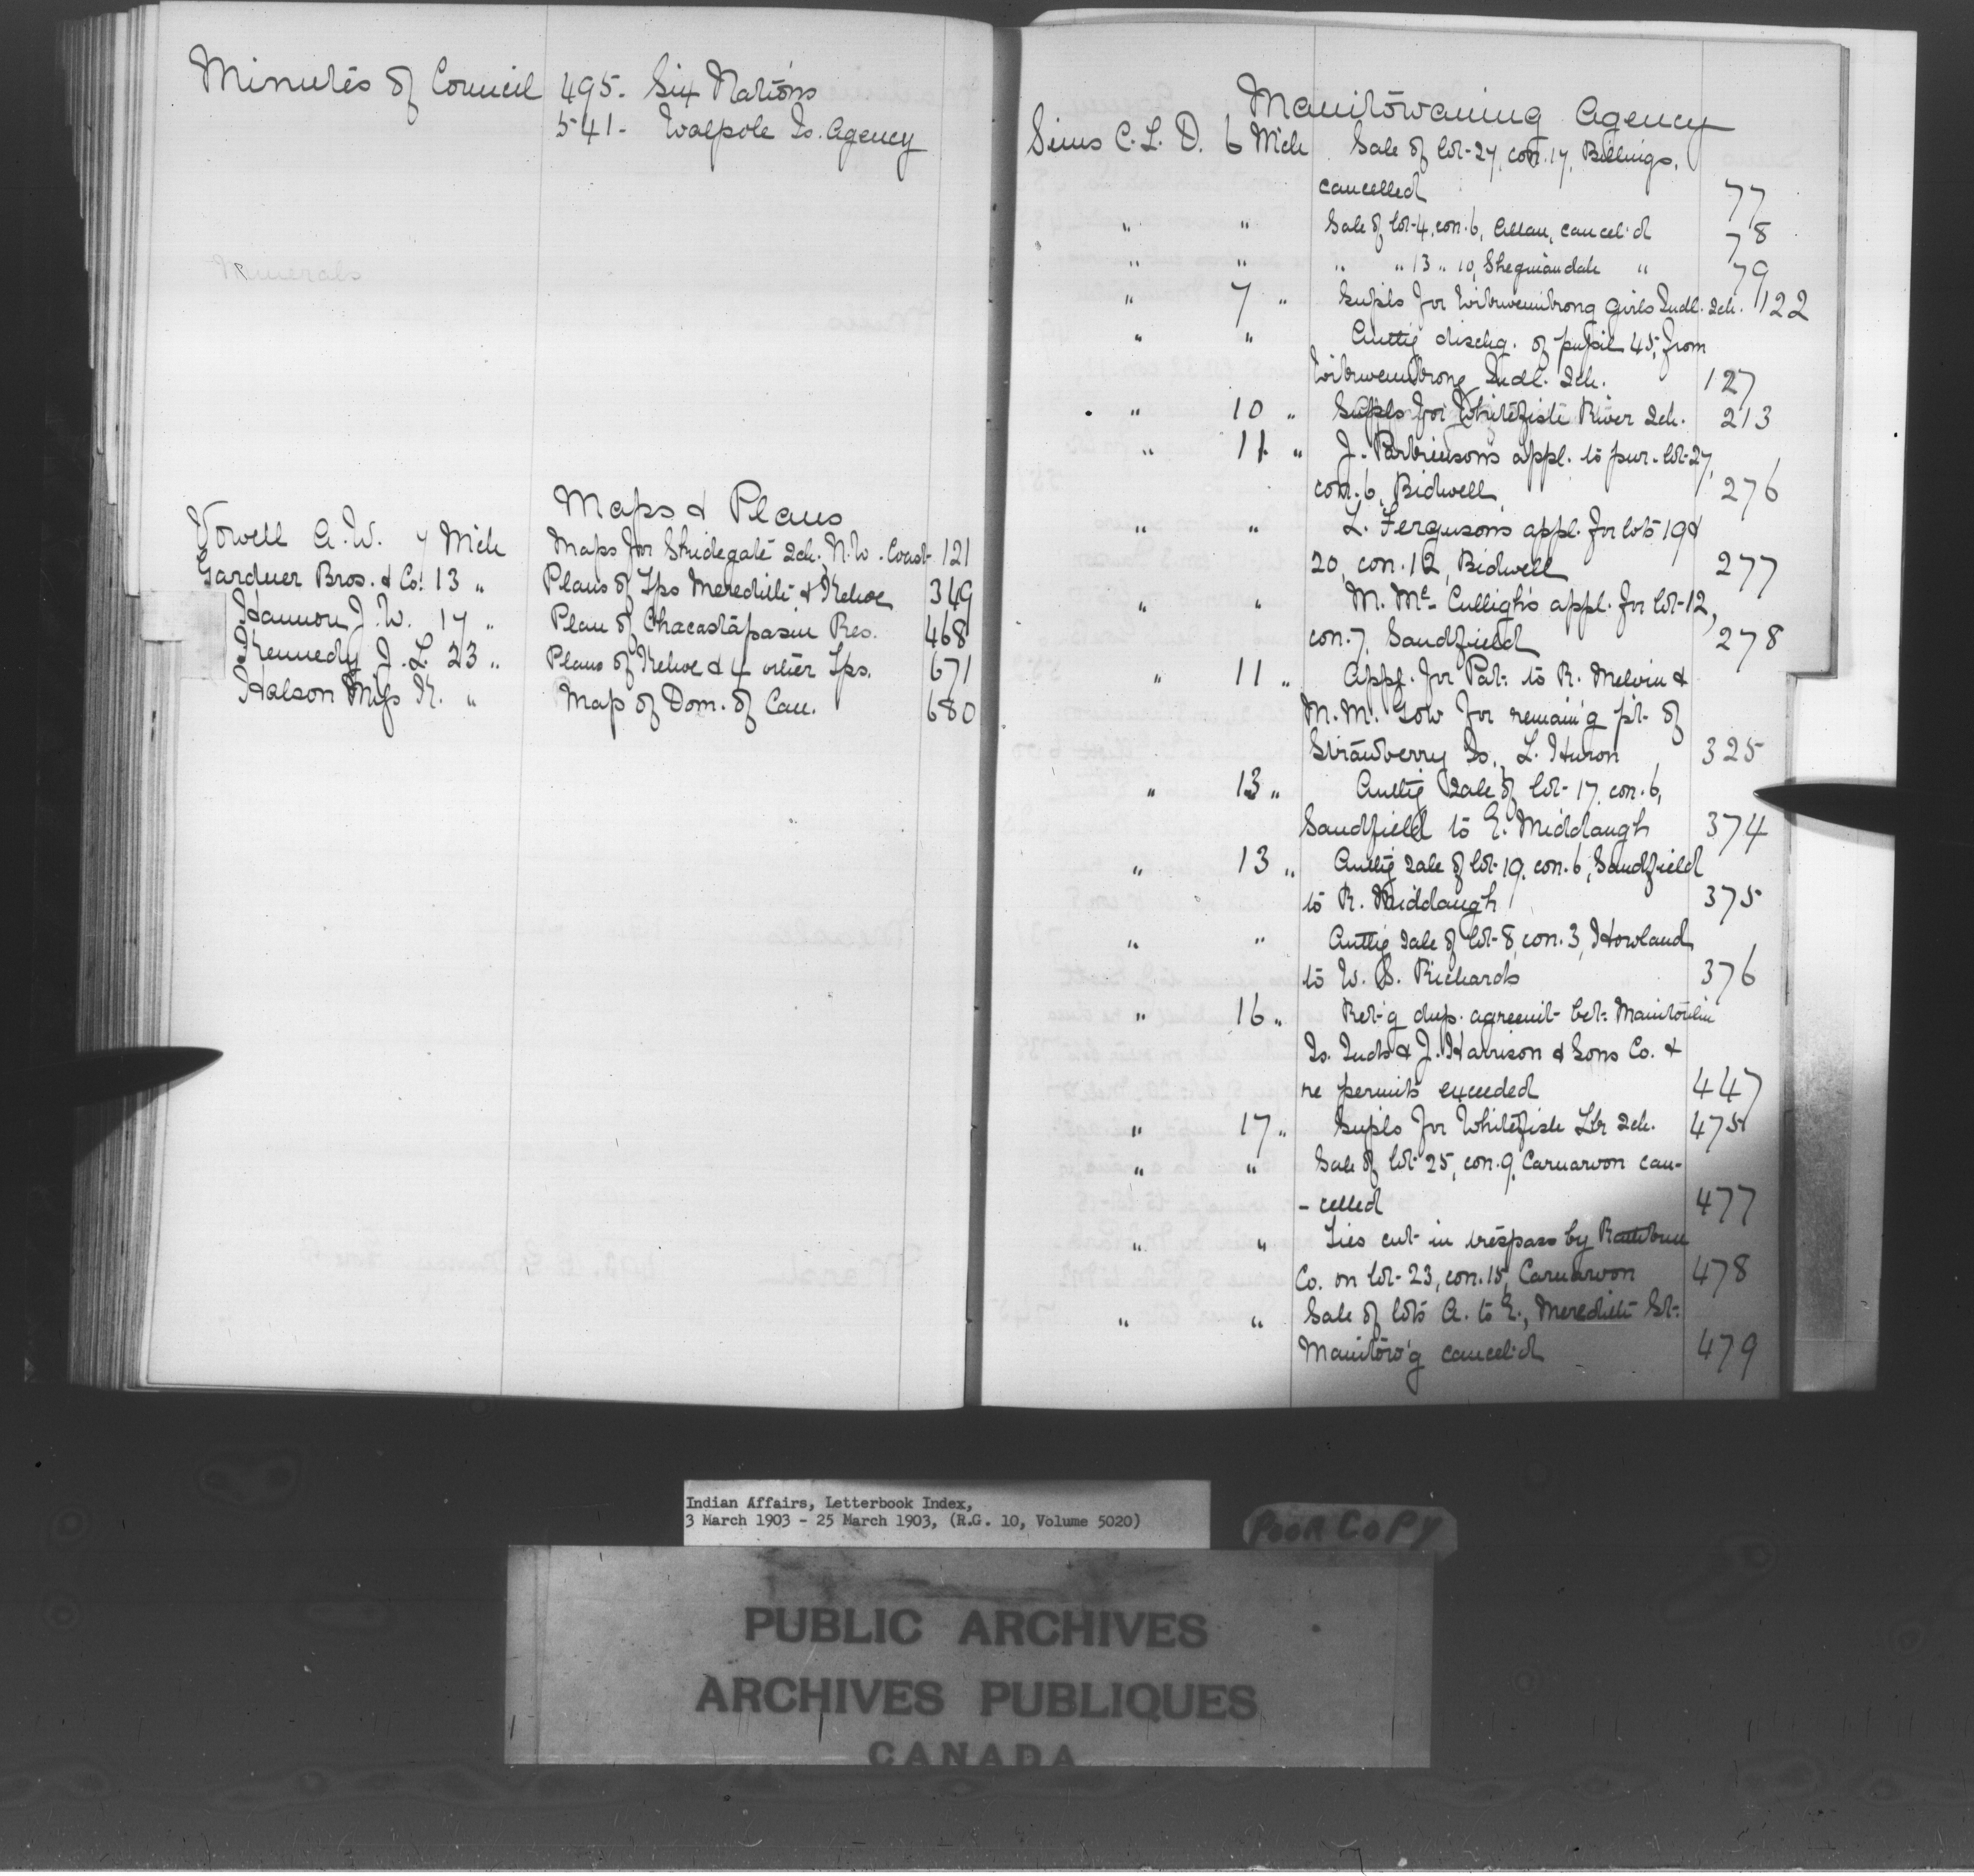 Minutes of Council 495. Six Nations
541 - Walpole Is. Agency
Maps & Plans
Vowell A.W. 7 Mch Maps for Skidegate Sch. N.W. Coast 121
Gardner Bros. & Co. 13 " Plans of Tps Meredith & Kehoe 349
Hannon J.W. 17 " Plan of Chacastapasin Res. 468
Kennedy J.L. 23 " Plans of Kehoe & 4 other Tps. 671
Halson Miss K. " Map of Dom. of Can. 680
Manitowaning Agency
Sims C.L.D. 6 Mch Sale of lot 27, con. 17, Billings,
cancelled 77
" " Sale of lot 4, con. 6, Allan, cancel'd 78
" " " " 13 " 10, Sheguiandah " 79
" 7 " Supls for Wikwemikong Girls Indl. Sch. 122
" " Authg dischg. of pupil 45, from
Wikwemikong Indl. Sch. 127
" 10 " Supls for Whitefish River Sch. 213
" 11 " J. Parkinson's appl. to pur. lot 27,
con. 6, Bidwell 276
" " L. Ferguson's appl. for lots 19 &
20, con. 12, Bidwell 277
" " M. Mc Culligh's appl. for lot 12,
con. 7, Sandfield 278
" 11 " Appl. for Pat: to R. Melvin &
M.M. Gow for remain'g pt. of
Strawberry Is., L. Huron 325
" 13 " Authg Sale of lot 17, con. 6,
Sandfield to E. Middaugh 374
" 13 " Authg sale of lot 19, con. 6, Sandfield
to R. Middaugh 375
" " Authg sale of lot 8, con. 3, Howland
to W. S. Richards 376
" 16 " Ret'g dup. agreemt bet: Manitoulin
Is. Inds & J. Harrison & Sons Co. &
re permits exceeded 447
" 17 " Supls for Whitefish Lk Sch. 475
" " Sale of lot 25, con. 9, Carnarvon can-
- celled 477
" " Ties cut in trespass by Rathbun
Co. on lot 23, con. 15, Carnarvon 478
" " Sale of lots A. to E., Meredith St.
Manitow'g cancel'd 479
Indian Affairs, Letterbook Index,
3 March 1903 - 25 March 1903, (R.G. 10, Volume 5020)
POOR COPY
PUBLIC ARCHIVES
ARCHIVES PUBLIQUES
CANADA